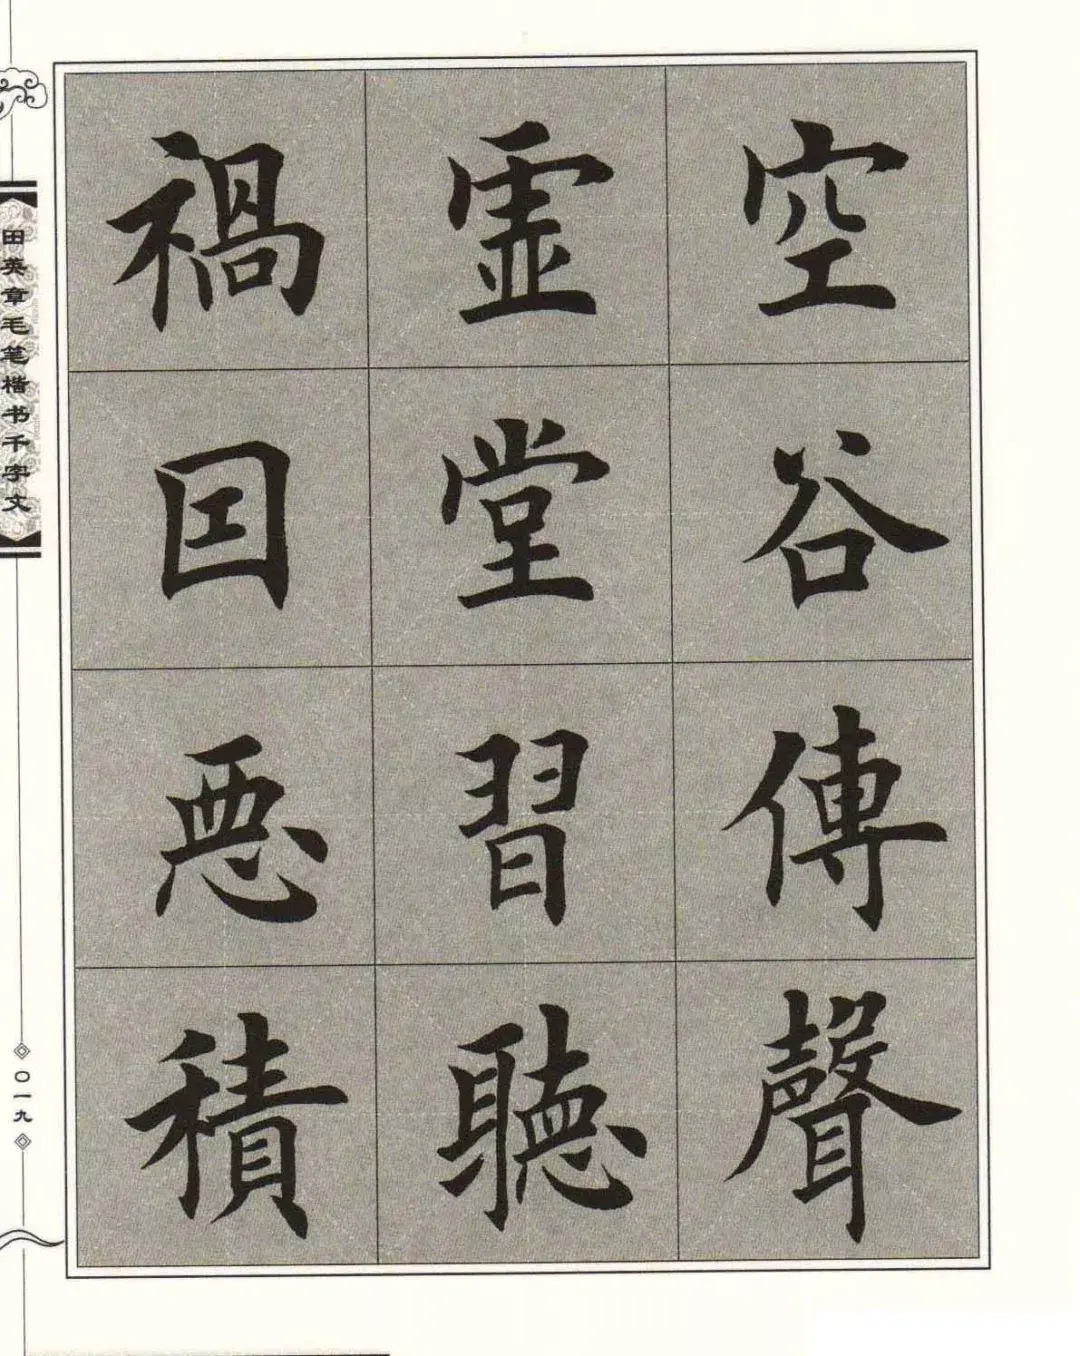 空谷傳聲
虛堂習聽
禍因惡積
田英章毛笔楷书千字文
〇一九